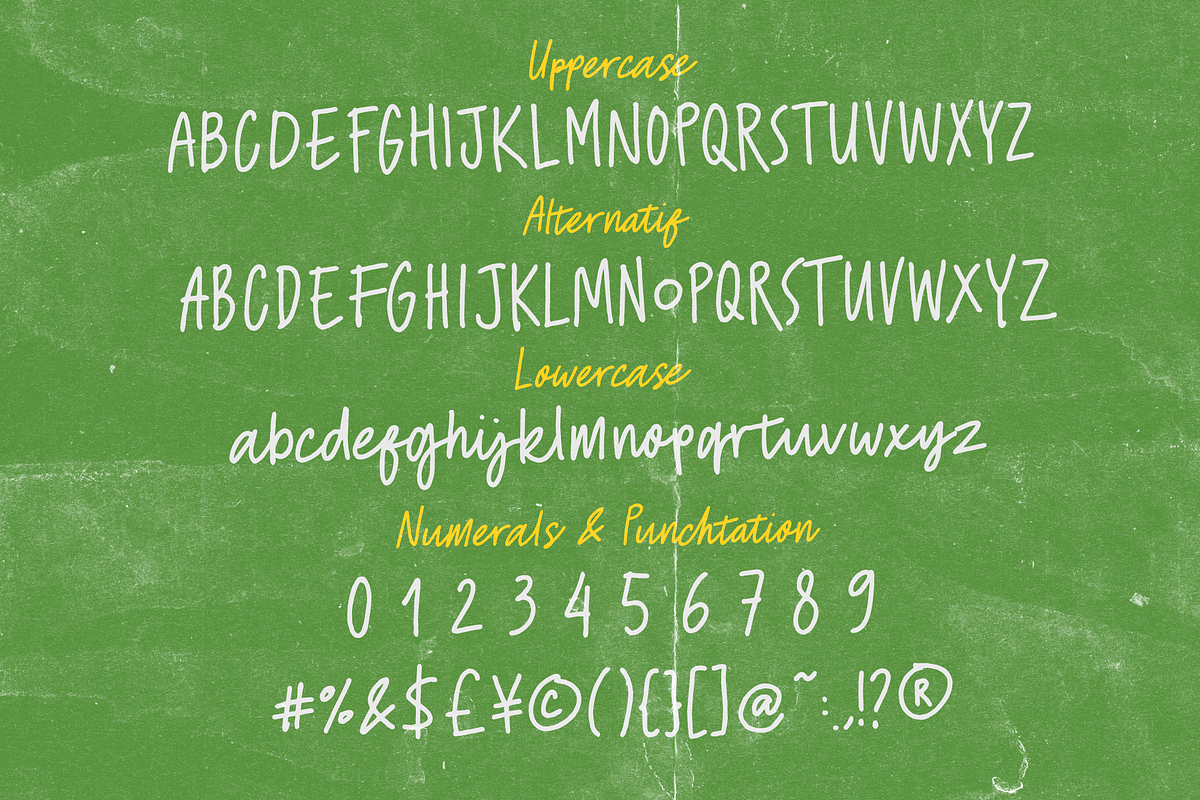 Uppercase
ABCDEFGHIJKLMNOPQRSTUVWXYZ
Alternatif
ABCDEFGHIJKLMNOPQRSTUVWXYZ
Lowercase
abcdefghijklmnopqrtuvwxyz
Numerals & Punchtation
0 1 2 3 4 5 6 7 8 9
#%&$£¥©(){}[]@~:.,!?®